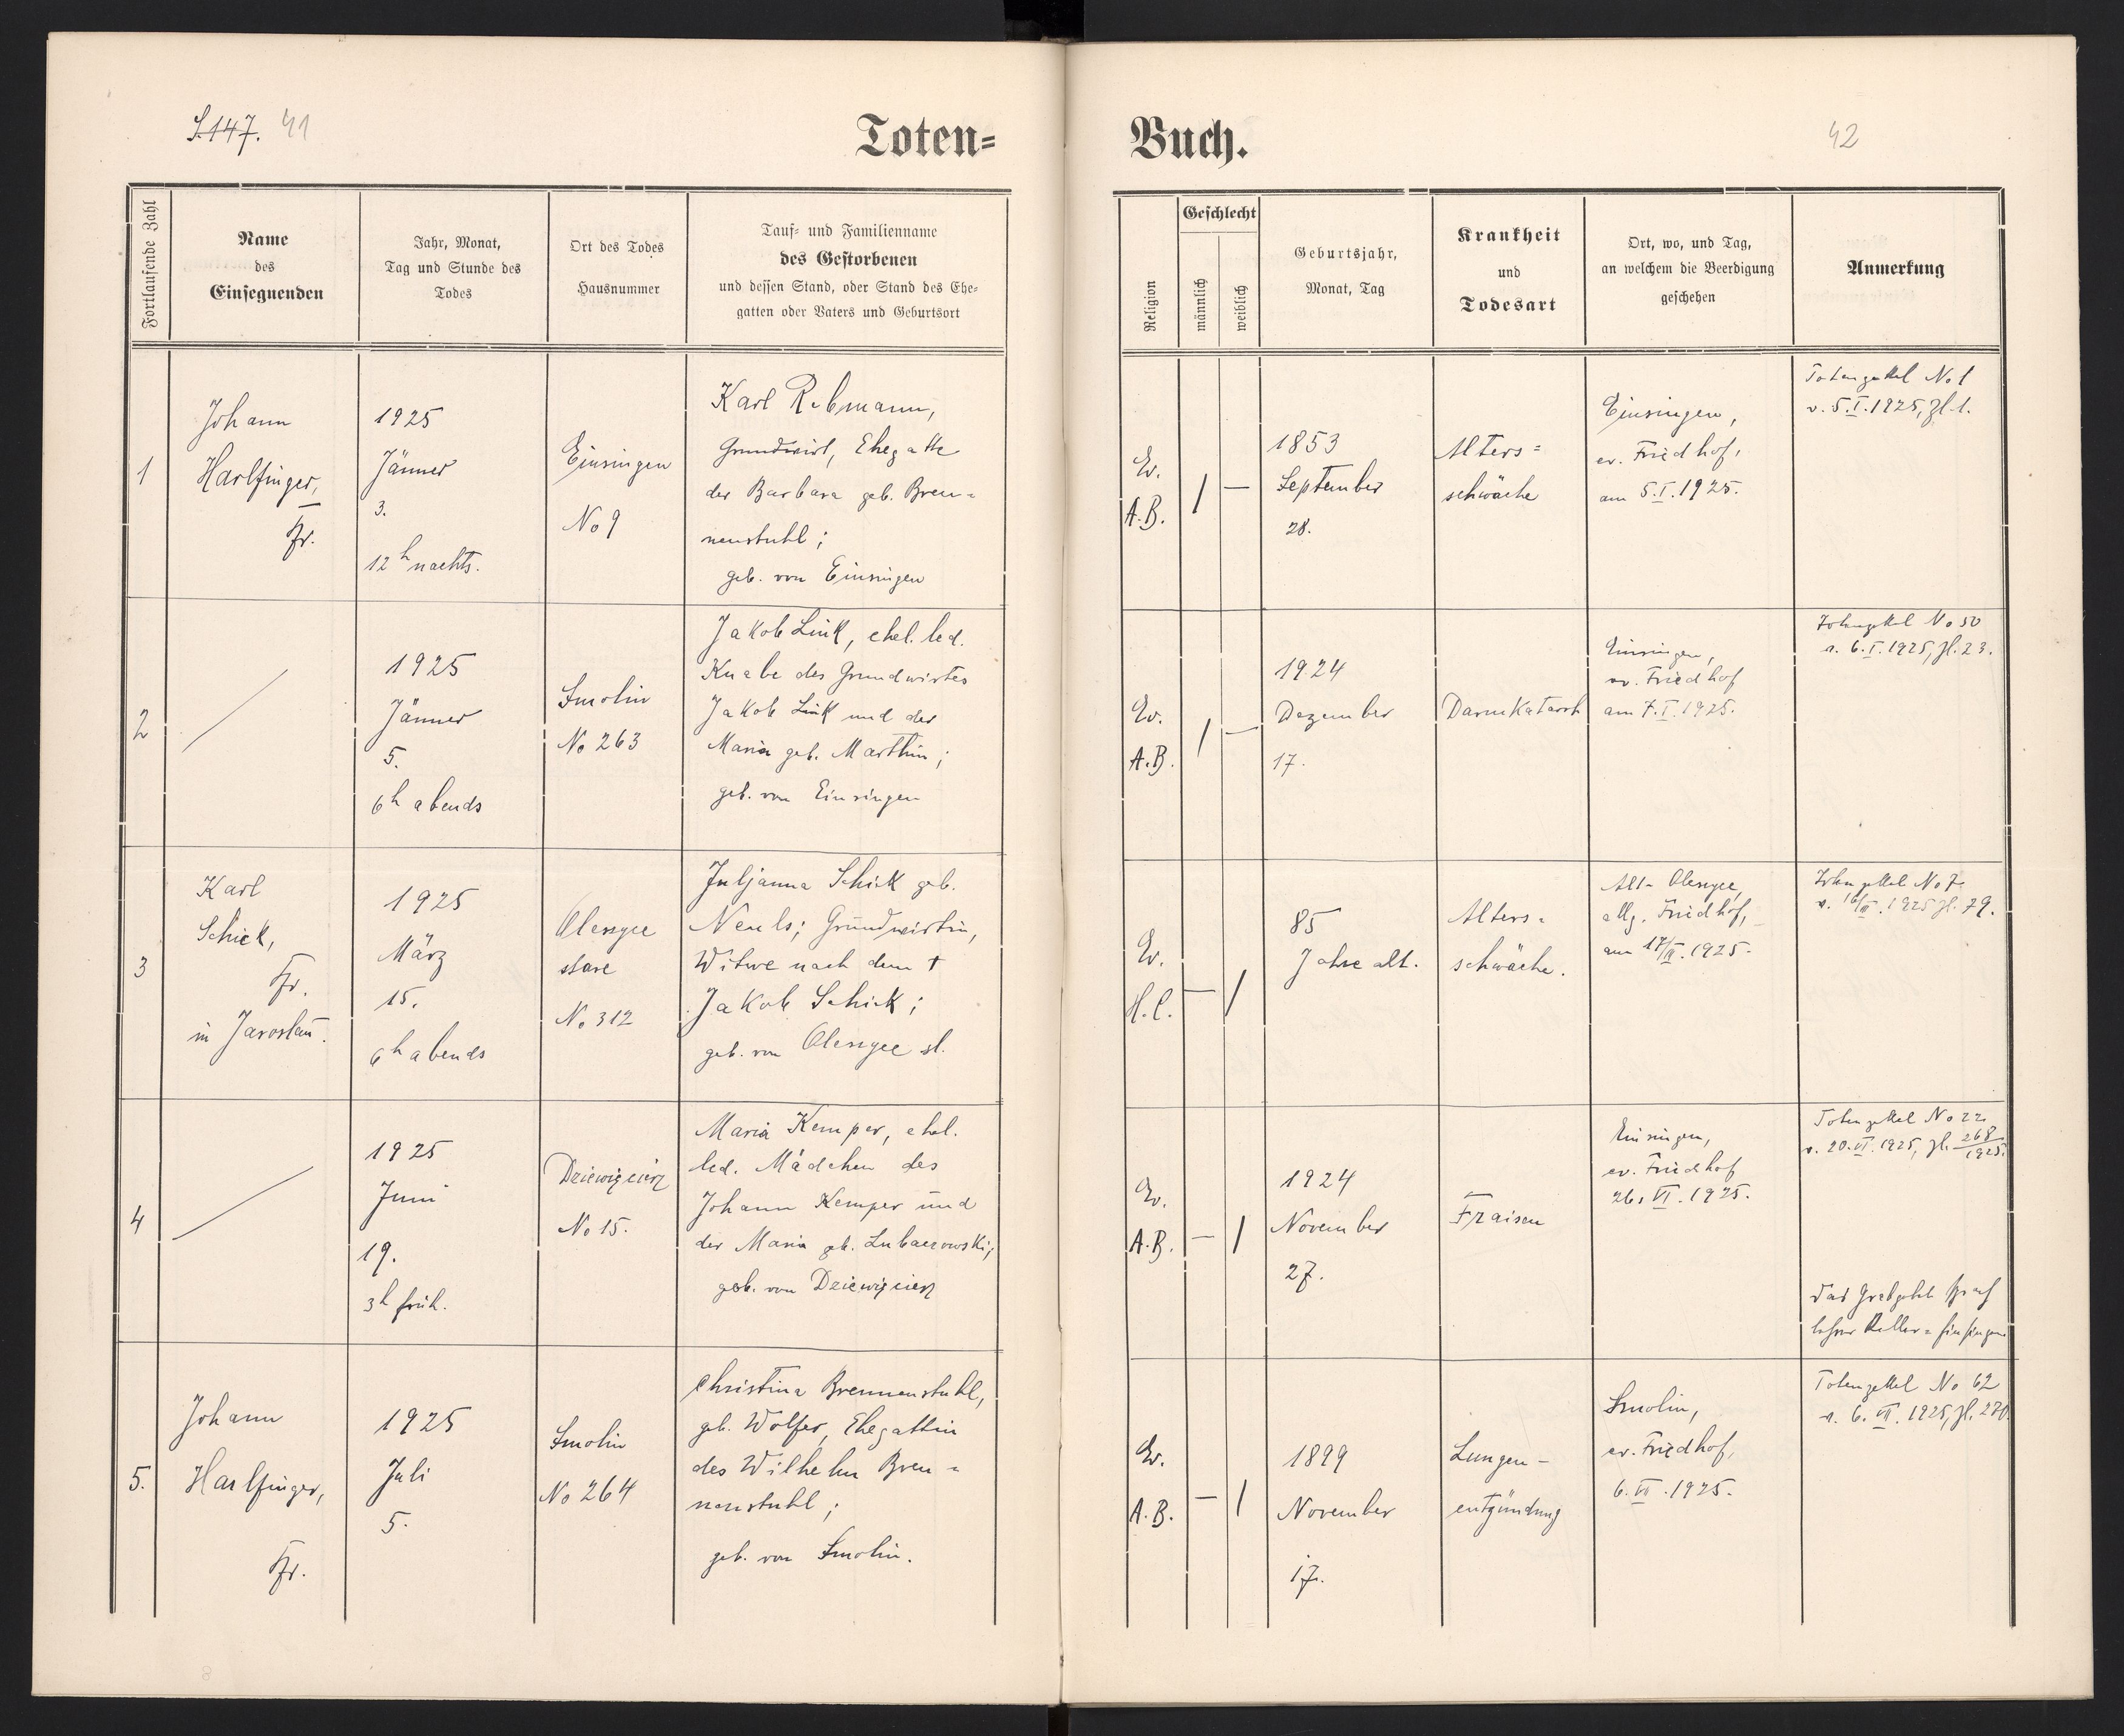 S. 147. 41
Toten-
Fortlaufende Zahl
Name
des
Einsegnenden
Jahr, Monat,
Tag und Stunde des
Todes
Ort des Todes
Hausnummer
Tauf- und Familienname
des Gestorbenen
und dessen Stand, oder Stand des Ehe-
gatten oder Vaters und Geburtsort
1
Johann
Harlfinger,
Pfr.
1925
Jänner
3.
12h nachts.
Einsingen
No 9
Karl Rebmann,
Grundwirt, Ehegatte
der Barbara geb. Bren-
nenstuhl;
geb. von Einsingen
2
1925
Jänner
5.
6h abends
Smolin
No 263
Jakob Link, ehel. led.
Knabe des Grundwirtes
Jakob Link und der
Maria geb. Marthin;
geb. von Einsingen
3
Karl
Schick,
Pfr.
in Jaroslau.
1925
März
15.
6h abends
Oleszyce
stare
No 312
Juljanna Schick geb.
Neuls; Grundwirtin,
Witwe nach dem †
Jakob Schick;
geb. von Oleszyce st.
4
1925
Juni
19.
3h früh.
Dziewięcierz
No 15.
Maria Kemper, ehel.
led. Mädchen des
Johann Kemper und
der Maria geb. Lubaczowski;
geb. von Dziewięcierz
5.
Johann
Harlfinger,
Pfr.
1925
Juli
5.
Smolin
No 264
Christina Brennenstuhl,
geb. Wolfer, Ehegattin
des Wilhelm Bren-
nenstuhl;
geb. von Smolin.
Buch.
42
Religion
Geschlecht
männlich
weiblich
Geburtsjahr,
Monat, Tag
Krankheit
und
Todesart
Ort, wo, und Tag,
an welchem die Beerdigung
geschehen
Anmerkung
Ev.
A.B.
1
—
1853
September
28.
Alters-
schwäche
Einsingen,
ev. Friedhof,
am 5.I.1925.
Totenzettel No 1
v. 5.I.1925, Zl. 1.
Ev.
A.B.
1
—
1924
Dezember
17.
Darmkatarrh
Einsingen,
ev. Friedhof
am 7.I.1925.
Totenzettel No 50
v. 6.I.1925, Zl. 23.
Ev.
H.C.
—
1
85
Jahre alt.
Alters-
schwäche.
Alt-Oleszyce,
allg. Friedhof,
am 17/III.1925.
Totenzettel No 7
v. 16/III.1925 Zl. 79.
Ev.
A.B.
—
1
1924
November
27.
Fraisen
Einsingen,
ev. Friedhof
VI.1925.
Totenzettel No 22
v. 20.VI.1925, Zl. 268/1925.
Das Grabgebet sprach
Lehrer Keller-Einsingen
Ev.
A.B.
—
1
1899
November
17.
Lungen-
entzündung
Smolin,
ev. Friedhof,
6.VII.1925.
Totenzettel No 62
v. 6.VII.1925, Zl. 270.